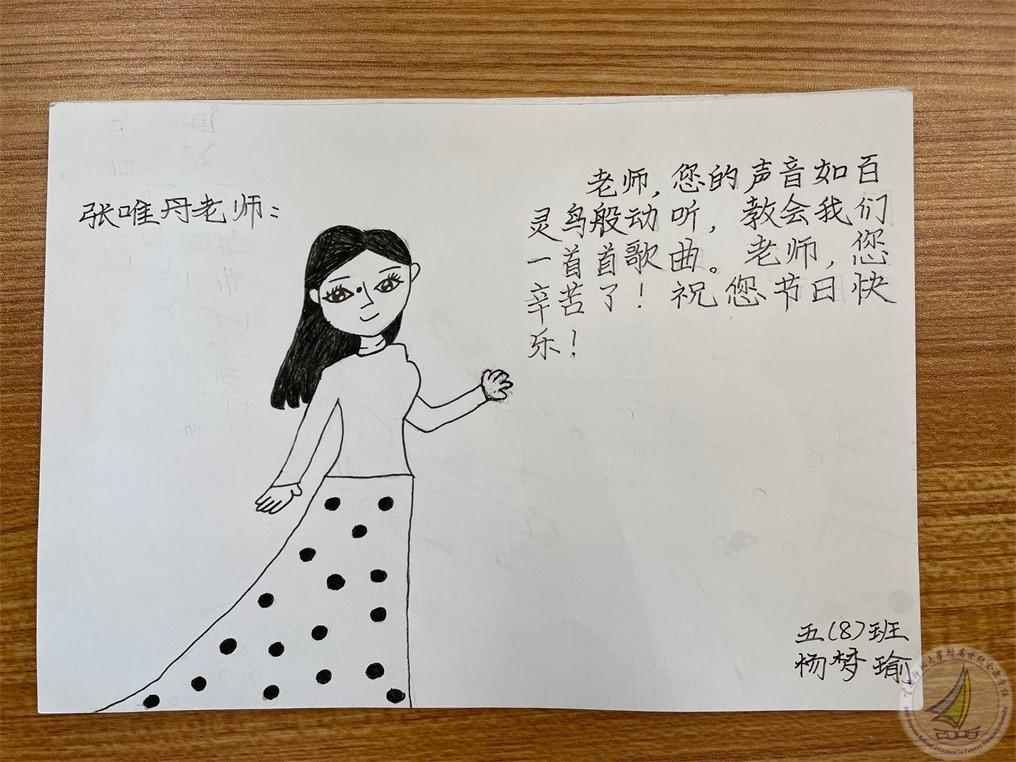 张唯丹老师：
老师，您的声音如百
灵鸟般动听，教会我们
一首首歌曲。老师，您
辛苦了！祝您节日快
乐！
五(8)班
杨梦瑜